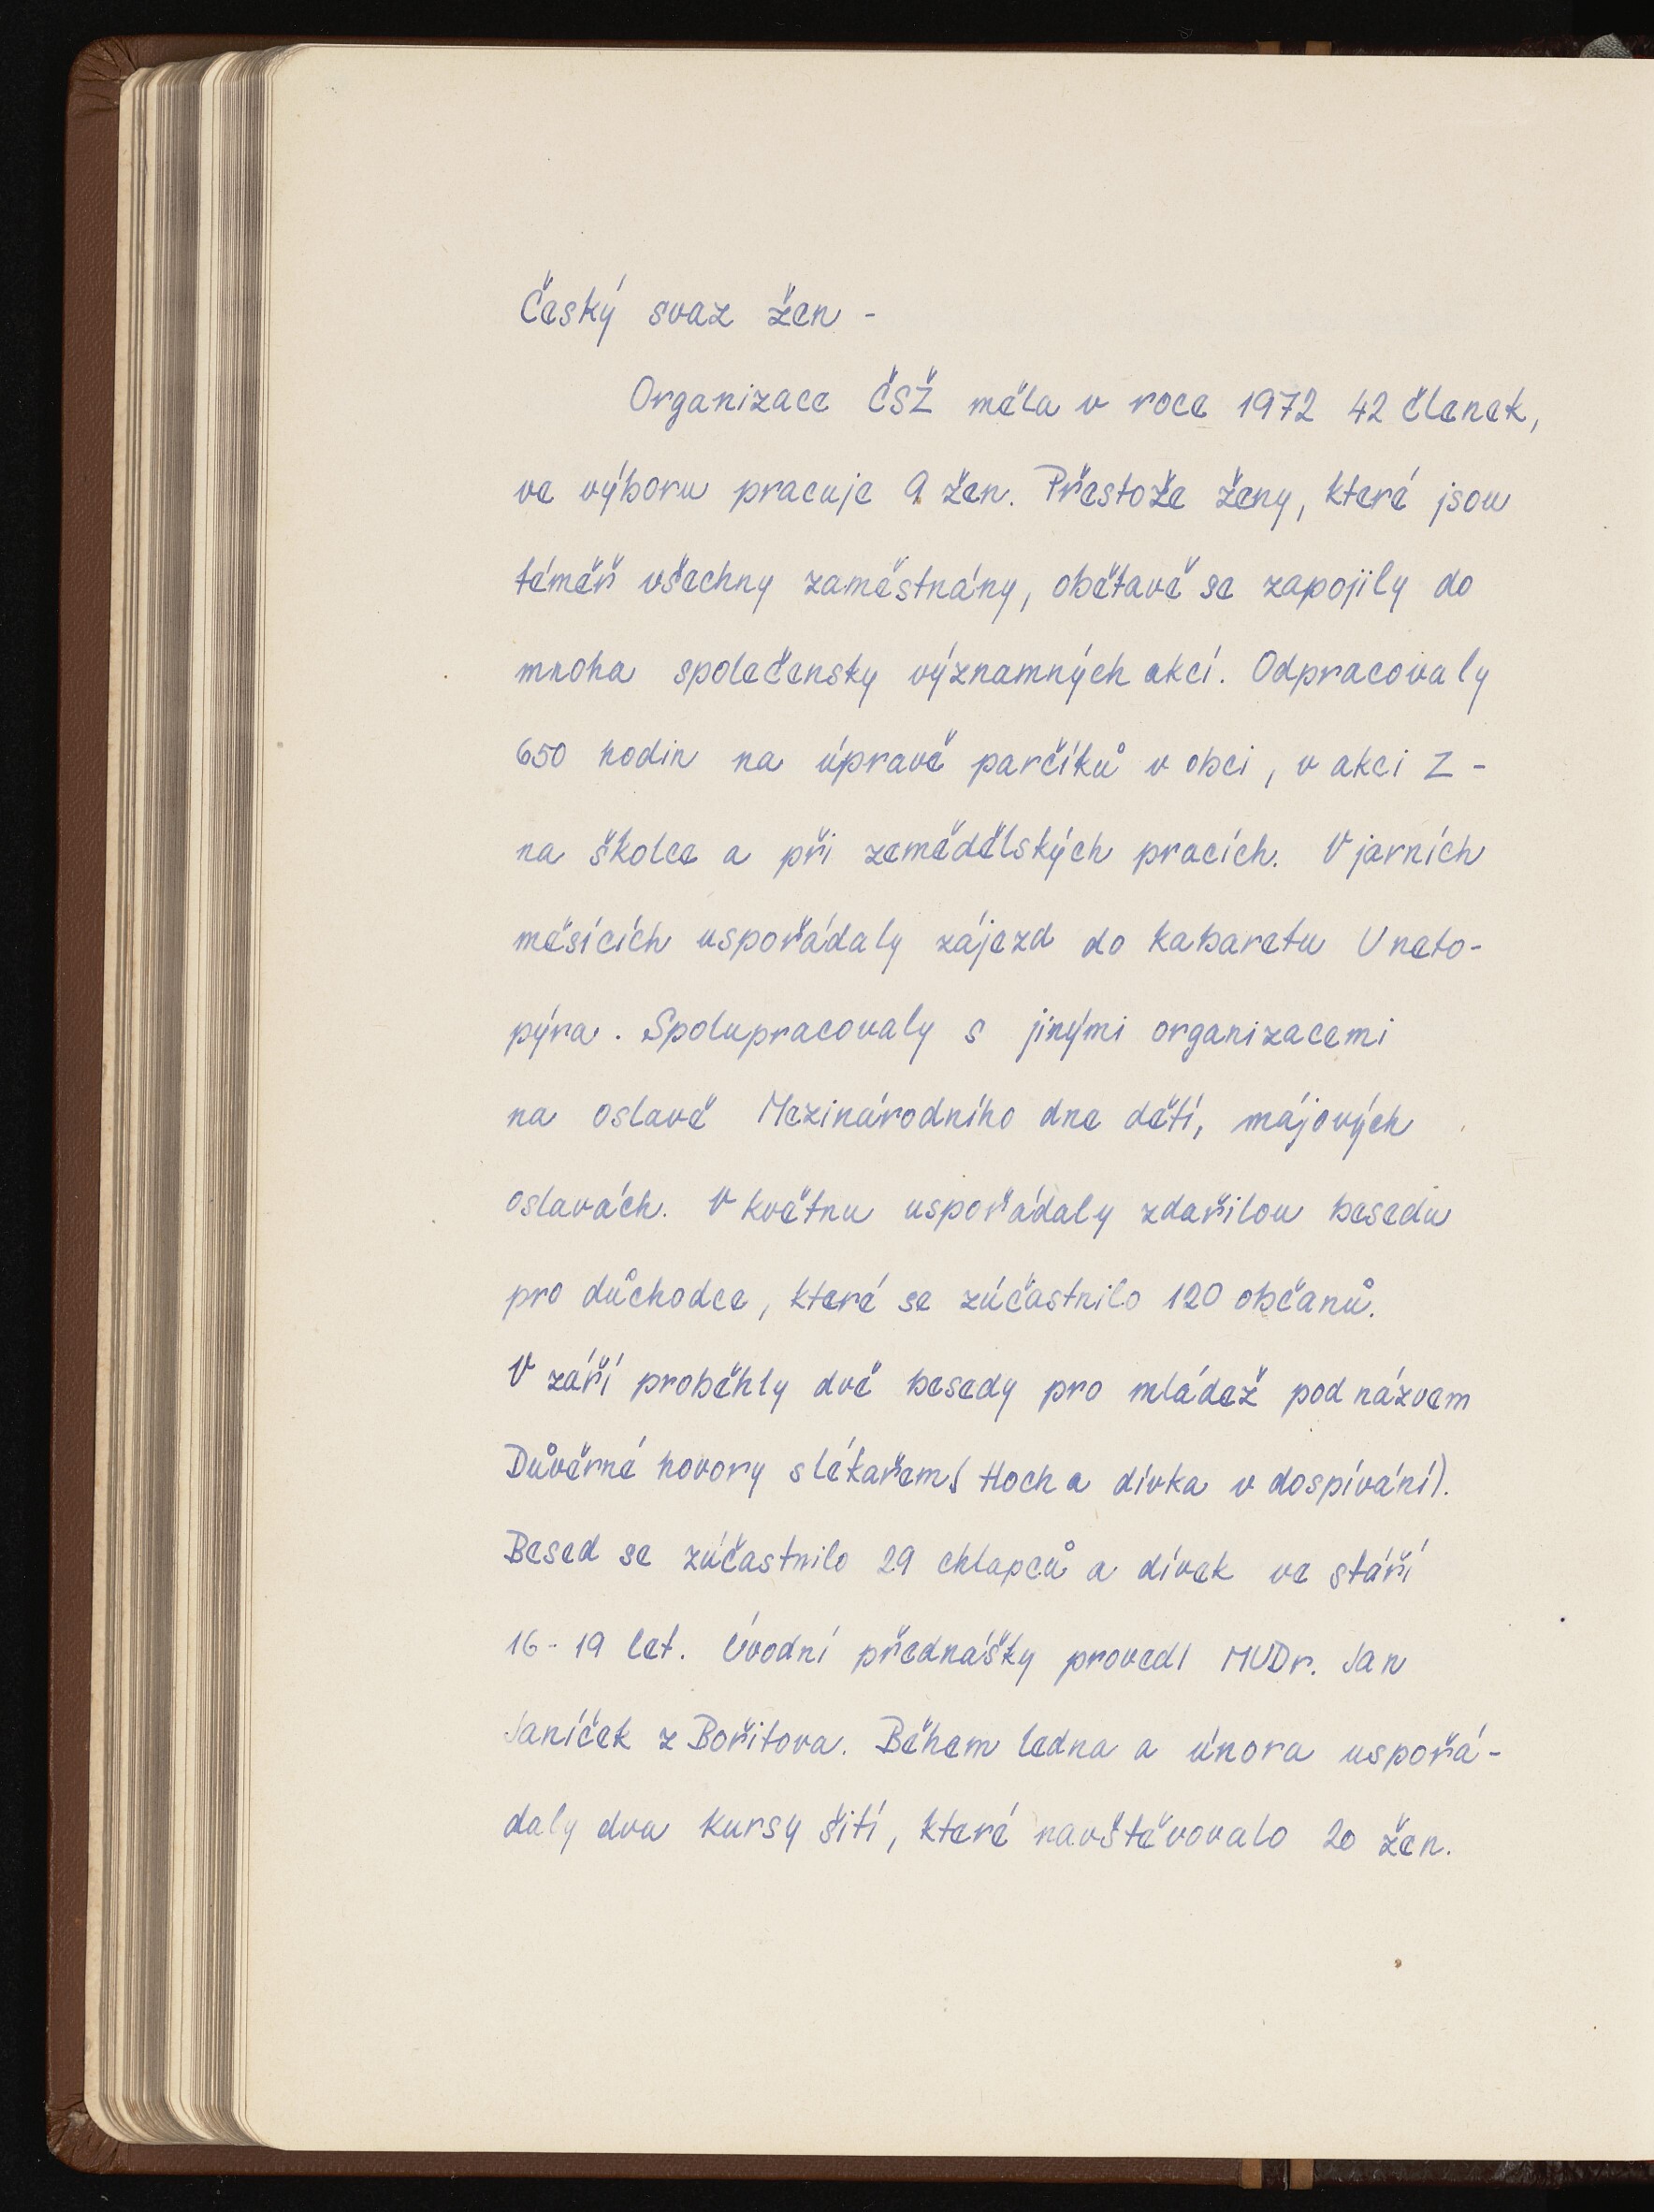 Český svaz žen -
Organizace ČSŽ měla v roce 1972 42 členek,
ve výboru pracuje 9 žen. Přestože ženy, které jsou
téměř všechny zaměstnány, obětavě se zapojily do
mnoha společensky významných akcí. Odpracovaly
650 hodin na úpravě parčíků v obci, v akci Z -
na školce a při zemědělských pracích. V jarních
měsících uspořádaly zájezd do kabaretu U neto-
pýra. Spolupracovaly s jinými organizacemi
na oslavě Mezinárodního dne dětí, májových
oslavách. V květnu uspořádaly zdařilou besedu
pro důchodce, které se zúčastnilo 120 občanů.
V září proběhly dvě besedy pro mládež pod názvem
Důvěrné hovory s lékařem (Hoch a dívka v dospívání).
Besed se zúčastnilo 29 chlapců a dívek ve stáří
16-19 let. Úvodní přednášky provedl MUDr. Jan
Janíček z Bořitova. Během ledna a února uspořá-
daly dva kursy šití, které navštěvovalo 20 žen.